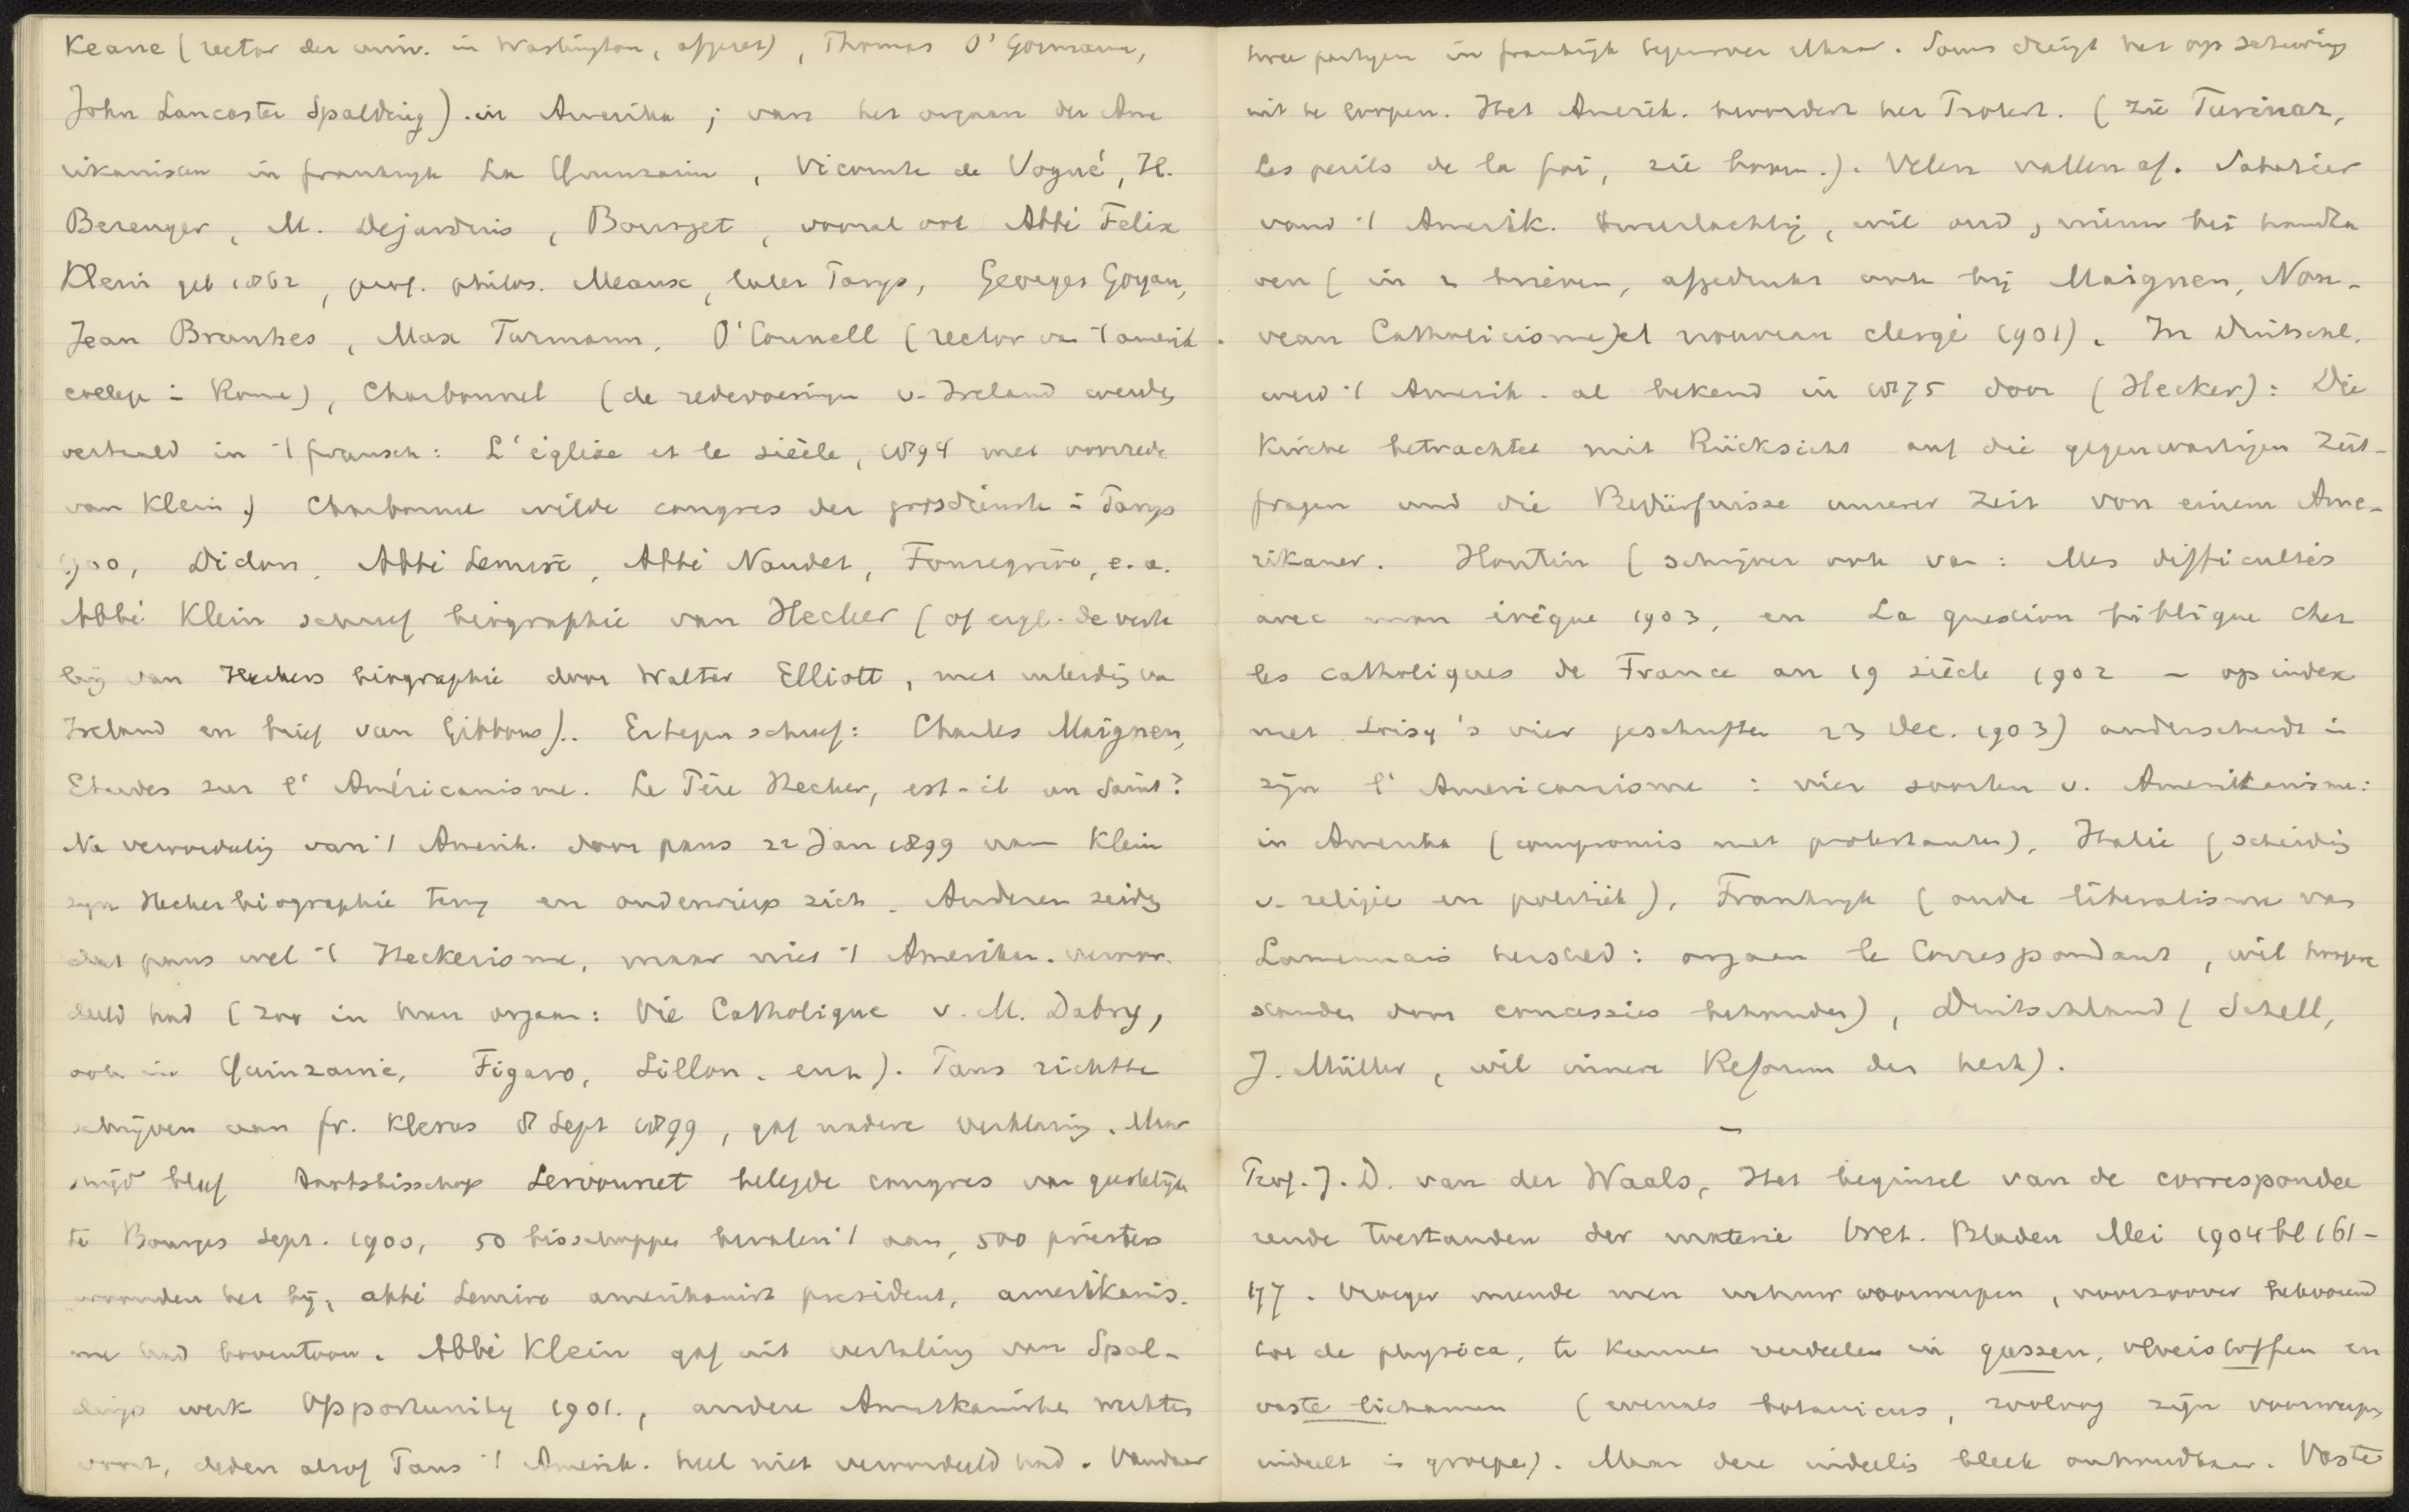 Keane (rector der univ. in Washington, afgezet), Thomas O'Gormann,
John Lancaster Spalding). in Amerika ; van het orgaan der Ame
rikanisten in frankrijk La Quinzaine, Vicomte de Vogué, H.
Berenger, M. Dejardins, Bourget, vooral ook Abbé Felix
Klein geb 1862, prof. philos. Meaux, later Parijs, Georges Goyau,
Jean Brunhes, Max Turmann, O'Connell (rector van 't amerik.
college i Rome), Charbonnel (de redevoeringen v. Ireland werden
vertaald in 't fransch: L'église et le siècle, 1894 met voorrede
van Klein.) Charbonnel wilde congres der godsdiensten i Parijs
1900, Didon, Abbé Lemire, Abbé Naudet, Fonsegrive, e.a.
Abbé Klein schreef biographie van Hecker (of eigl. de verta
ling van Heckers biographie door Walter Elliott, met inleiding van
Ireland en brief van Gibbons).. Ertegen schreef: Charles Maignen,
Etudes sur l'Américanisme. Le Père Hecker, est-il un Saint?
Na veroordeling van 't Amerik. door paus 22 Jan 1899 nam Klein
zijn Heckerbiographie terug en onderwierp zich. Anderen zeiden
dat paus wel 't Heckerisme, maar niet 't Amerikan. veroor-
deeld had (zoo in hun orgaan: Vie Catholique v. M. Dabry,
ook in Quinzaine, Figaro, Sillon. enz). Paus richtte
schrijven aan fr. klerus 8 Sept 1899, gaf nadere verklaring. Maar
strijd bleef Aartsbisschop Servonnet belegde congres van geestelijken
te Bourges Sept. 1900, 50 bisschoppen bevalen 't aan, 500 priesters
woonden het bij, abbé Lemire amerikanist president, amerikanis-
me had boventoon. Abbé Klein gaf uit vertaling van Spal-
dings werk Opportunity 1901., andere Amerikanisten werkten
voort, deden alsof Paus 't Amerik. heel niet veroordeeld had. Vandaar
twee partijen in frankrijk tegenover elkaar. Soms dreigt het op scheuring
uit te loopen. Het Amerik. bevordert het Protest. (zie Turinaz,
Les perils de la foi, zie boven.). Velen vallen af. Sabatier
vond 't Amerik. tweeslachtig, wil oud, nieuw beî handha
ven (in 2 brieven, afgedrukt ook bij Maignen, Nou-
veau Catholicisme) et nouveau clergé 1901). In Duitschl.
werd 't Amerik. al bekend in 1875 door (Hecker): Die
Kirche betrachtet mit Rücksicht auf die gegenwärtigen Zeit-
fragen und die Bedürfnisse unserer Zeit von einem Ame-
rikaner. Houtin (schrijver ook van: Mes difficultés
avec mon évêque 1903, en La question biblique chez
les catholiques de France au 19 siècle 1902 – op index
met Loisy's vier geschriften 23 Dec. 1903) onderscheidt i
zijn l'Americanisme : vier soorten v. Amerikanisme:
in Amerika (compromis met protestanten), Italie (scheiding
v. religie en politiek), Frankrijk (oude liberalisme van
Lamennais hersteld: orgaan le Correspondant, wil
door concessies behouden), Duitschland (Schell,
J. Müller, wil innere Reform der kerk).
–
Prof. J. D. van der Waals, Het beginsel van de corresponde
rende toestanden der materie Wet. Bladen Mei 1904 bl 161-
177. Vroeger meende men natuurvoorwerpen, voorzoover behoorend
tot de physica, te kunnen verdeelen in gassen, vloeistoffen en
vaste lichamen (evenals botanicus, zoöloog zijn voorwerpen
indeelt in groepen). Maar deze indeeling bleek onhoudbaar. Vaste